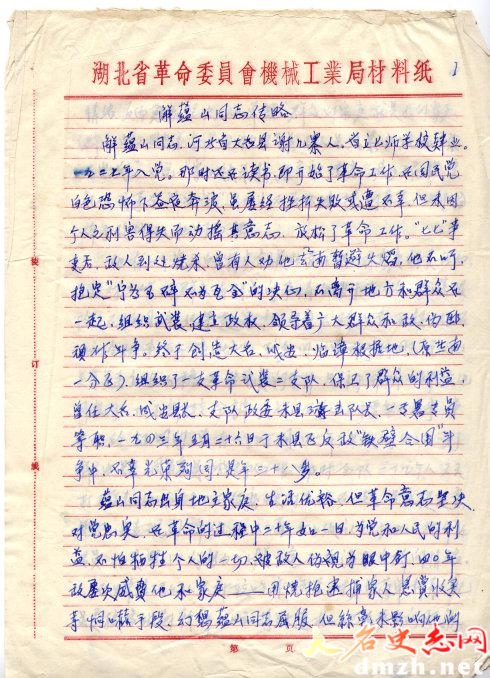 湖北省革命委員會機械工業局材料纸
1
解蕴山同志传略
解蕴山同志,河北省大名县谢儿寨人,省立七师学校肄业。
一九二七年入党。那时还在读书,即开始了革命工作。在国民党
白色恐怖下益夜奔波,虽屡经挫折失败或遭不幸,但未因
个人之利害得失而动摇其意志,放松了革命工作。"七七"事
变后,敌人到处烧杀,曾有人劝他去南暂避火焰,他不听,
抱定"宁为玉碎不为瓦全"的决心,不离于地方和群众在
一起,组织武装,建立政权,领导着广大群众和敌、伪、
顽作斗争。终于创造大名、成安、临漳根据地,(原
一分区),组织了一支革命武装二支队,保卫了群众的利益,
曾任大名、成安县长、支队政委本县游击队长、一专署专员
等职,一九四三年五月二十六日于本县反敌"铁壁合围"斗
争中,不幸光荣殉国,其年三十八岁。
蕴山同志出身地主家庭,生活优裕,但革命意志坚决,
对党忠实,在革命的过程中二十年如一日,为党和人民的利
益,不怕牺牲个人的一切,被敌人伪视为眼中钉,四〇年
敌屡次威胁他和家庭——用烧抢逮捕家人悬赏收买
等恫吓手段,幻想蕴山同志屈服,但丝毫未影响他
装
订
线
第 页
人名史志网
dmzh.net